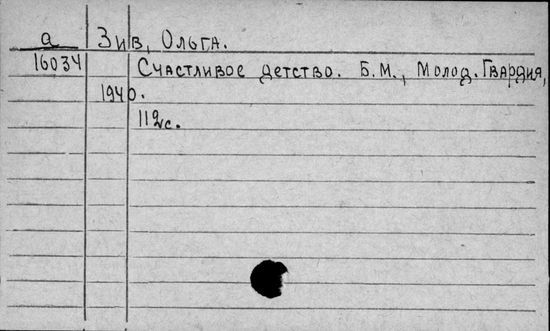 а Зив, Ольга.
16034 Счастливое детство. Б.М., Молод. Гвардия,
1940.
112с.